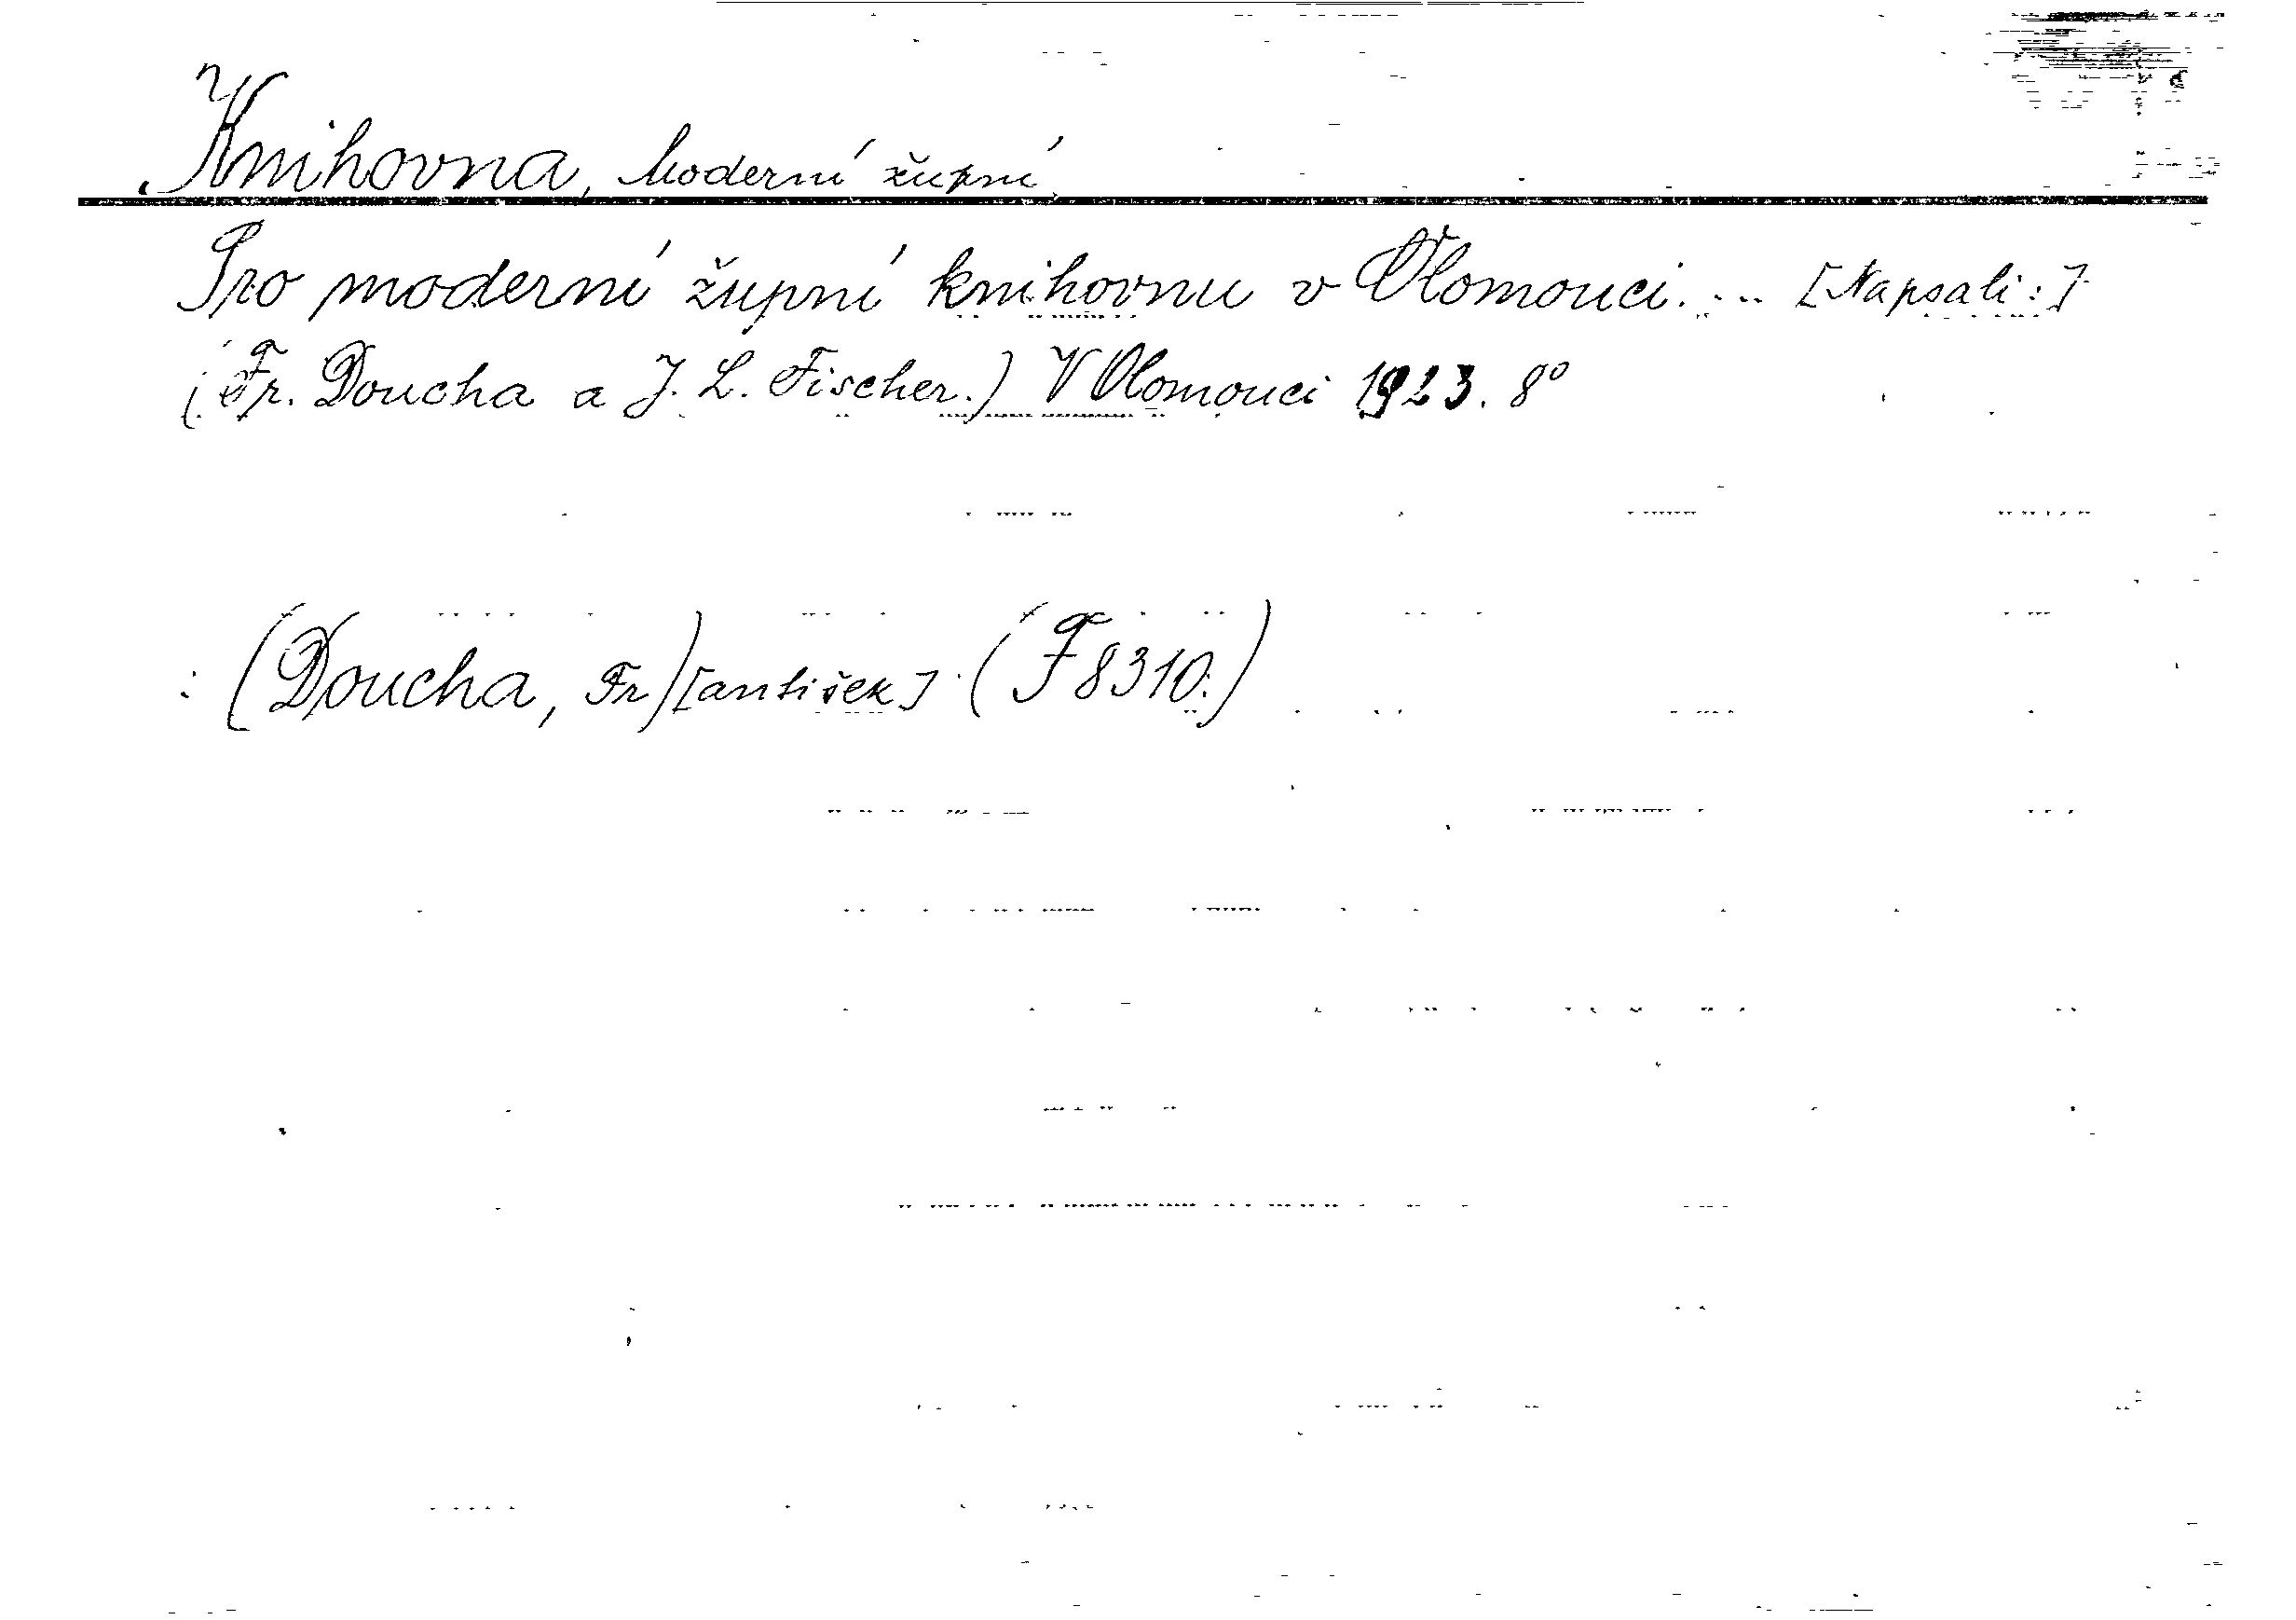 Knihovna, Moderní župní.
Pro moderní župní knihovnu v Olomouci. ... [Napsali:]
(Fr. Doucha a J. L. Fischer.) V Olomouci 1923. 8°
: (Doucha, Fr)[antišek] (F 8310.)